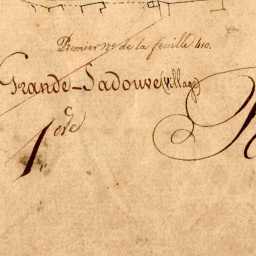 Premier no. de la feuille 410.
Grande-Sadouve (village)
1ere